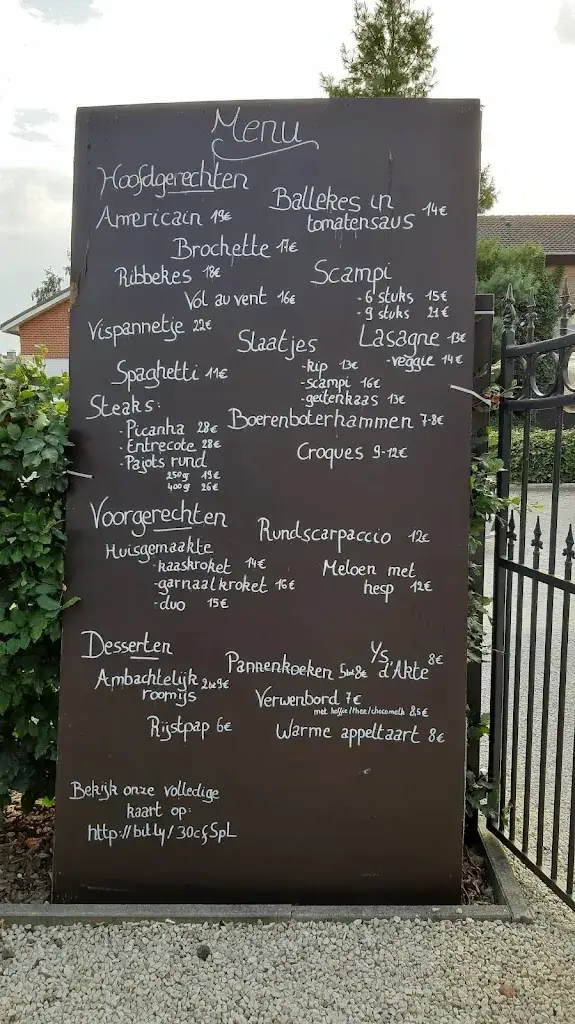 Menu
Hoofdgerechten
Americain 19€
Ballekes in
tomatensaus 14€
Brochette 17€
Ribbekes 18€
Scampi
- 6 stuks 15€
- 9 stuks 21€
Vol au vent 16€
Vispannetje 22€
Slaatjes
- kip 13€
- scampi 16€
- geitenkaas 13€
Lasagne 13€
- veggie 14€
Spaghetti 11€
Steaks:
- Picanha 28€
- Entrecote 28€
- Pajots rund
250gr 19€
400gr 26€
Boerenboterhammen 7-8€
Croques 9-12€
Voorgerechten
Huisgemaakte
- kaaskroket 14€
- garnaalkroket 16€
- duo 15€
Rundscarpaccio 12€
Meloen met
hesp 12€
Desserten
Ambachtelijk
roomijs
Pannenkoeken
Ys
d'Akte 8€
Verwenbord 7€
met koffie/thee/chocomelk 8,5€
Rijstpap 6€
Warme appeltaart 8€
Bekijk onze volledige
kaart op: